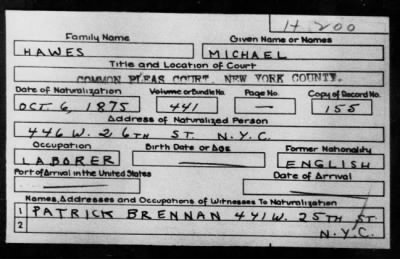 H-200
Family Name Given Name or Names
HAWES MICHAEL
Title and Location of Court
COMMON PLEAS COURT, NEW YORK COUNTY.
Date of Naturalization Volume or Bundle No. Page No. Copy of Record No.
OCT. 6, 1875 441 — 155
Address of Naturalized Person
446 W. 26TH ST. N.Y.C.
Occupation Birth Date or Age Former Nationality
LABORER ENGLISH
Port of Arrival in the United States Date of Arrival
Names, Addresses and Occupations of Witnesses To Naturalization
1 PATRICK BRENNAN 441 W. 25TH ST.
2 N.Y.C.